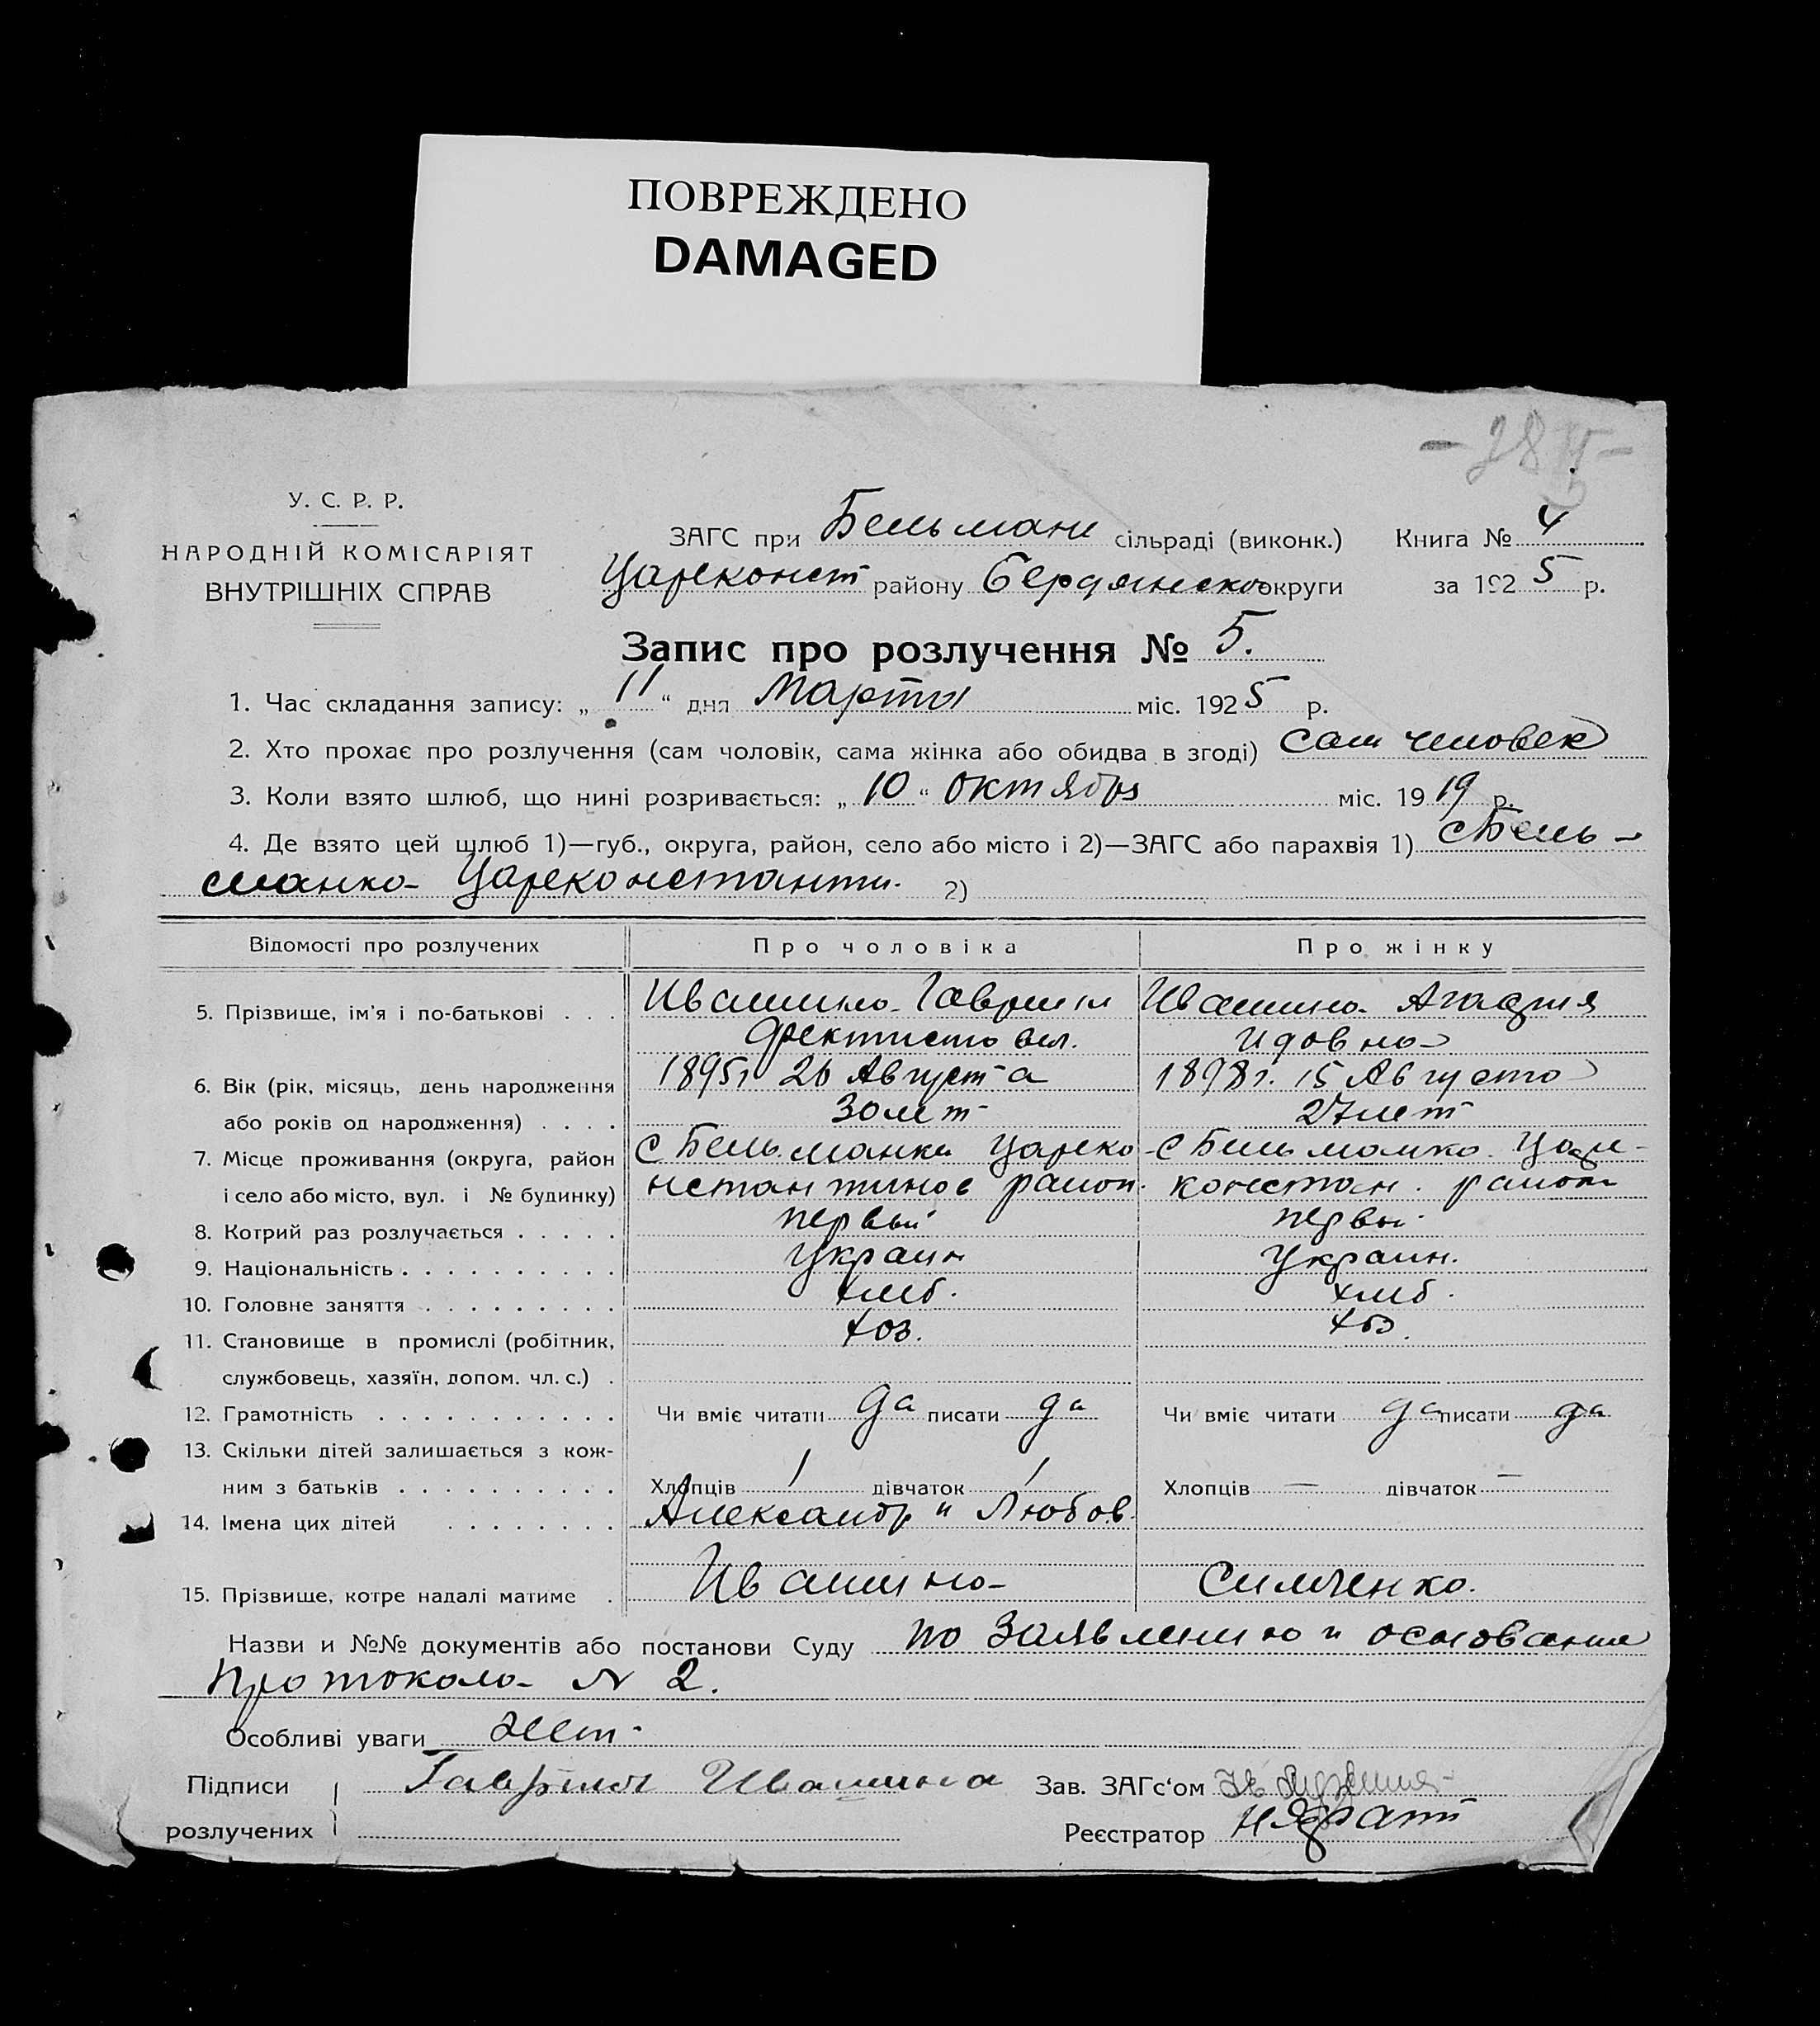 ПОВРЕЖДЕНО
DAMAGED
У. С. Р. Р.
НАРОДНІЙ КОМІСАРІЯТ
ВНУТРІШНІХ СПРАВ
ЗАГС при Бельман сільраді (виконк.) Книга № 4
Цареконст району Бердянско округи за 1925 р.
Запис про розлучення № 5.
1. Час складання запису: „ 11 “ дня Марта міс. 1925 р.
2. Хто прохає про розлучення (сам чоловік, сама жінка або обидва в згоді) Сам человек
3. Коли взято шлюб, що нині розривається: „ 10 “ октября міс. 1919 р.
4. Де взято цей шлюб 1)—губ., округа, район, село або місто і 2)—ЗАГС або парахвія 1) с Бель-
манка Цареконстанти. 2)
Відомості про розлучених Про чоловіка Про жінку
5. Прізвище, ім'я і по-батькові . . . Ивашина Гавриил Ивашина
Фектистович.
6. Вік (рік, місяць, день народження 1895г 26 Августа 1898г. 15 Августа
або років од народження) . . . . 30 лет 27 лет
7. Місце проживання (округа, район с Бельманка Цареко с Бельманка Царе-
і село або місто, вул. і № будинку) нстантинов район. констан. район
8. Котрий раз розлучається . . . . . первый первы
9. Національність . . . . . . . . . . Украин Украин.
10. Головне заняття . . . . . . . . . хлеб. хлеб.
11. Становище в промислі (робітник, хоз. хоз.
службовець, хазяїн, допом. чл. с.) .
12. Грамотність . . . . . . . . . . . Чи вміє читати да писати да Чи вміє читати да писати да
13. Скільки дітей залишається з кож-
ним з батьків . . . . . . . . . . Хлопців 1 дівчаток 1 Хлопців — дівчаток —
14. Імена цих дітей . . . . . . . . Александр и Любов.
15. Прізвище, котре надалі матиме . Ивашина Симченко.
Назви и №№ документів або постанови Суду по заявлению и основание
Протокола N 2.
Особливі уваги нет.
Підписи Гаврил Ивашина Зав. ЗАГс‘ом
розлучених Реєстратор